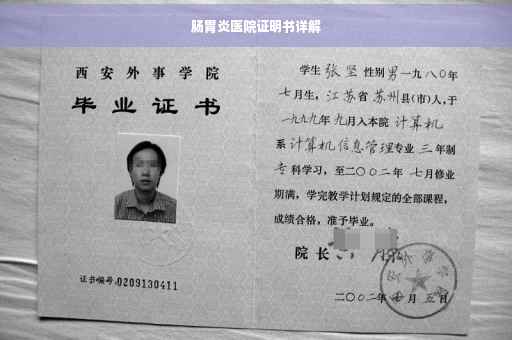 肠胃炎医院证明书详解
西安外事学院
毕业证书
证书编号:0209130411
学生 张坚 性别 男 一九八〇年
七月生，江苏省 苏州县(市)人,于
一九九九年 九月入本院 计算机
系 计算机信息管理专业 三 年制
专 科学习，至二〇〇二年 七月修业
期满，学完教学计划规定的全部课程,
成绩合格，准予毕业。
院长
二〇〇二年 月 五日